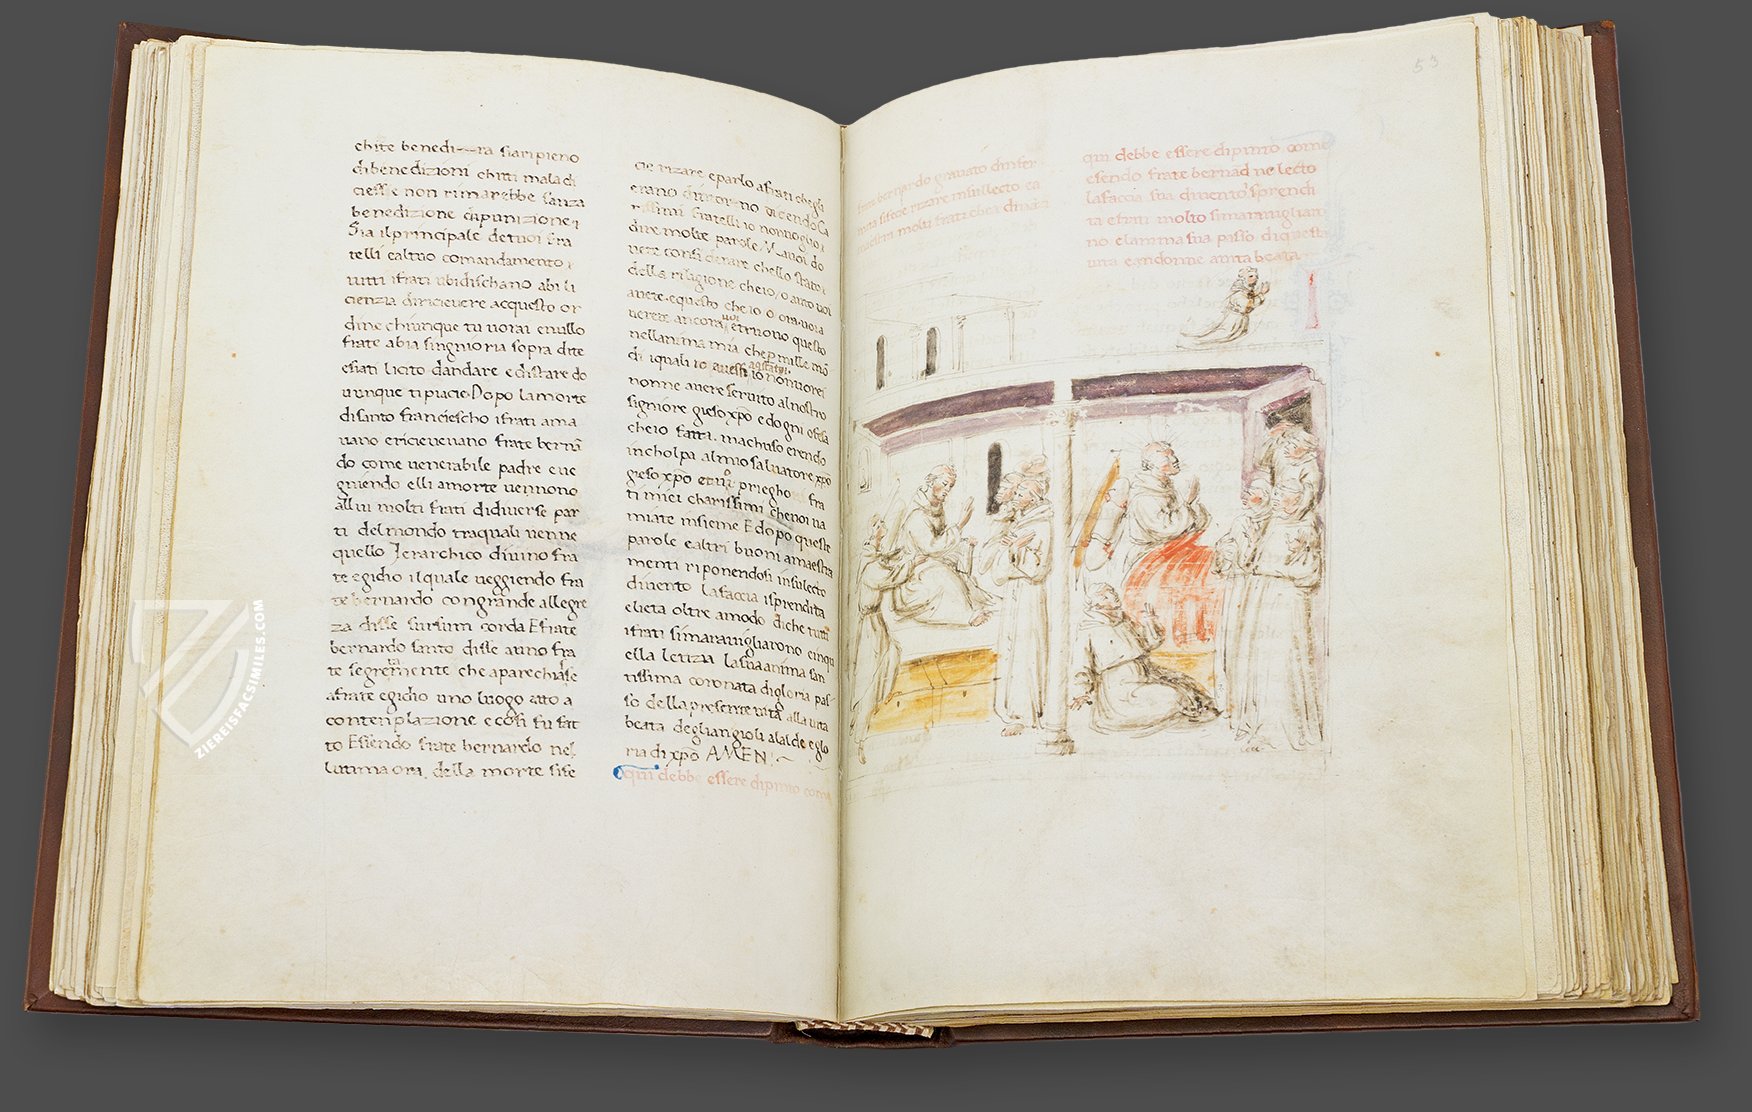 chite benedi—ra sia ripieno
di benedizioni chi ti maladi
ciesse non rimarebbe sanza
benedizione di punizione
Sia il principale de tuoi fra
telli e al tuo comandamento
tutti i frati ubidischano abi li
cienzia di ricievere a cquesto or
dine chiunque tu vorai e nullo
frate abia singnioria sopra di te
e siati licito d andare e di stare do
vunque ti piacie Dopo la morte
di santo Franciescho i frati ama
vano e ricievevano frate berna
do come venerabile padre e ve
gniendo elli a morte vennono
allui molti frati di diverse par
ti del mondo tra quali venne
quello Jerarchico divino fra
te egidio il quale veggiendo fra
te bernardo con grande allegre
za disse sursum corda E frate
bernardo santo disse a uno fra
te segretamente che aparechiasse
a frate egidio uno luogo atto a
contenplazione e così fu fat
to Essendo frate bernardo nel
l utima ora della morte si fe
cie rizare e parlo a frati che gli
erano dintorno dicendo Ca
rissimi fratelli io non voglio
dire molte parole Ma voi do
vete considerare che llo stato
della riligione che io o auto voi
avete e questo che io o ora voi a
verete ancora voi e truovo questo
nell anima mia che per mille mo
di iquali io avessi aqistati io non vorei
nonne avere servito al nostro
signiore gieso xpo e d ogni ofesa
che io fatti m achuso e rendo
in cholpa al mio salvatore xpo
gieso xpo e a voi priegho fra
ti miei charissimi che voi va
miate insieme E dopo queste
parole e altri buoni amaestra
menti riponendosi in sul lecto
divento la faccia isprendita
e lieta oltre a modo di che tutti
i frati si maravigliarono e in qu
ella letizia la sua anima san
tissima coronata di gloria pas
so della presente vita alla vita
beata degli angioli a laude e glo
ria di xpo AMEN
qui debbe essere dipinto come
frate bernardo gravato d infer
mita si fece rizare in sul lecto ea
maestri molti frati che a dintorno
53
qui debbe essere dipinto come
esendo frate bernad ne lecto
la faccia sua divento sprendi
ta e frati molto si maravigliaro
no e l anima sua passo di questa
vita e andonne a vita beata
ZIEREISFACSIMILES.COM